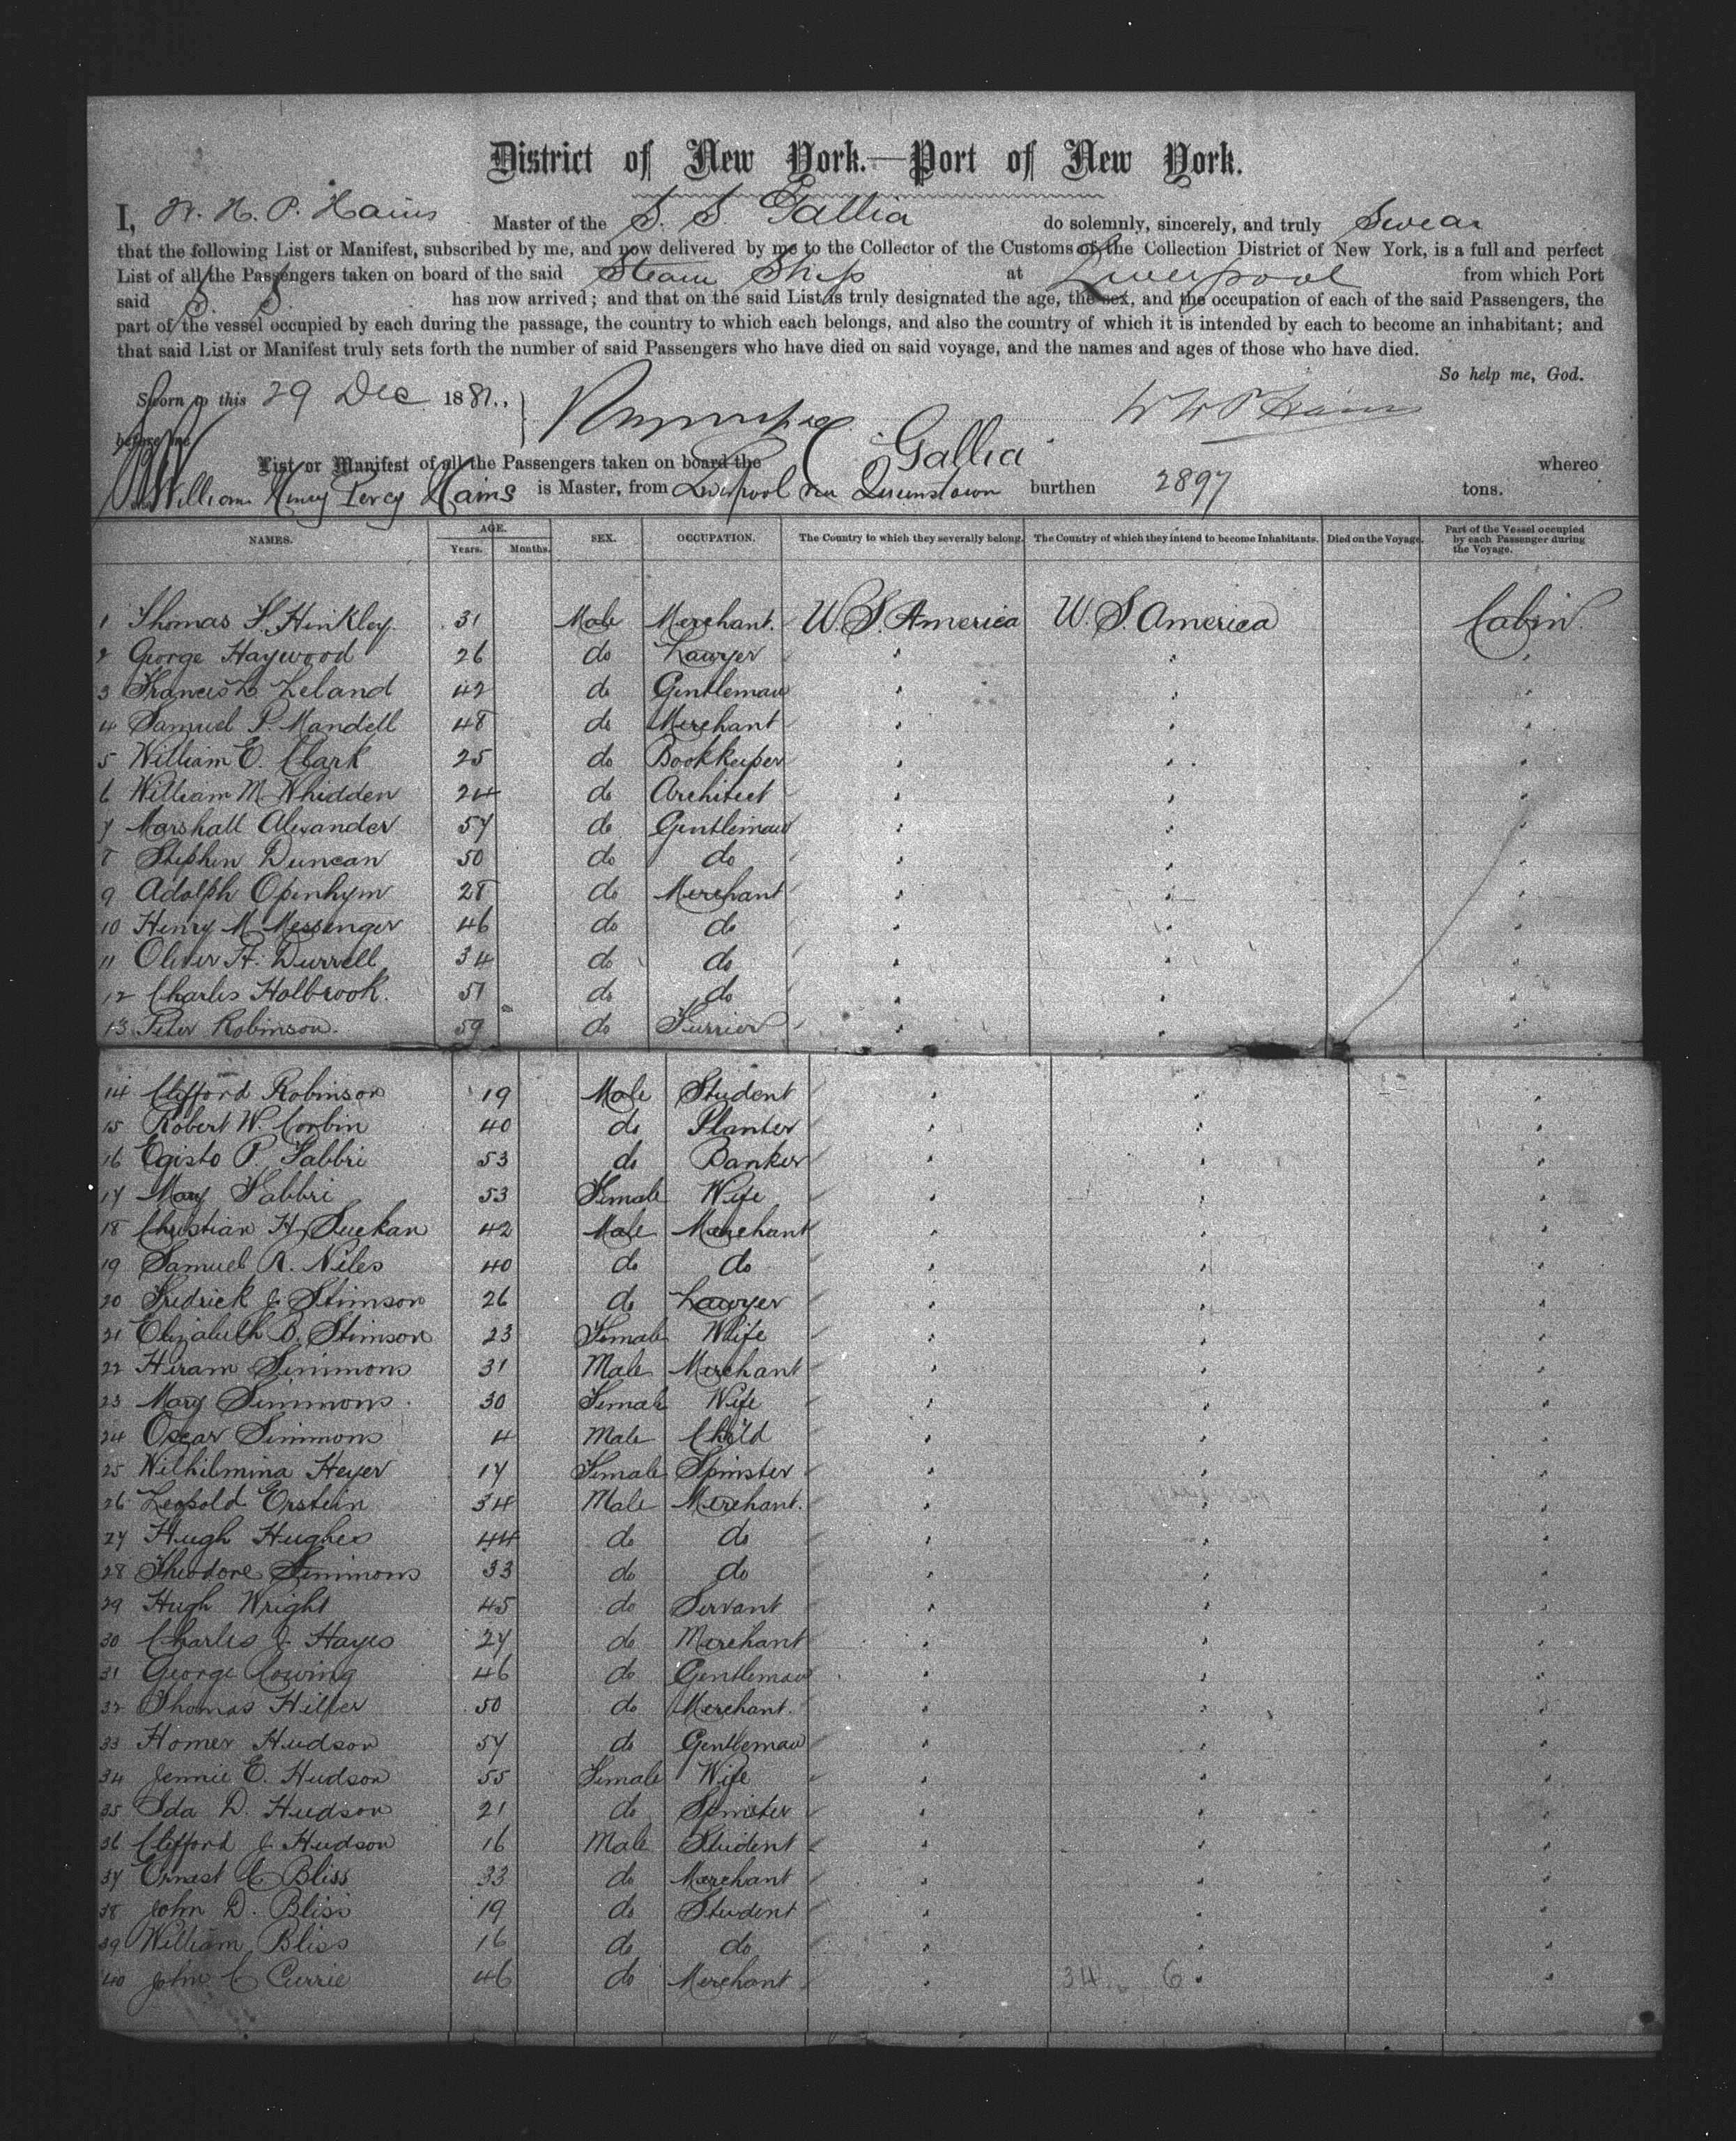 District of New York.—Port of New York.
I, W. H. P. Hains Master of the S. S. Gallia do solemnly, sincerely, and truly Swear
that the following List or Manifest, subscribed by me, and now delivered by me to the Collector of the Customs of the Collection District of New York, is a full and perfect
List of all the Passengers taken on board of the said Steam Ship at Liverpool from which Port
said S. S. has now arrived; and that on the said List is truly designated the age, the sex, and the occupation of each of the said Passengers, the
part of the vessel occupied by each during the passage, the country to which each belongs, and also the country of which it is intended by each to become an inhabitant; and
that said List or Manifest truly sets forth the number of said Passengers who have died on said voyage, and the names and ages of those who have died.
So help me, God.
Sworn to this 29 Dec 1881. W H P Hains
before me
List or Manifest of all the Passengers taken on board the Gallia whereo
William Henry Percy Hains is Master, from Liverpool via Queenstown burthen 2897 tons.
NAMES. AGE. Years. Months. SEX. OCCUPATION. The Country to which they severally belong. The Country of which they intend to become Inhabitants. Died on the Voyage. Part of the Vessel occupied by each Passenger during the Voyage.
1 Thomas S. Hinkley 31 Male Merchant. U. S. America U. S. America Cabin
2 George Haywood 26 do Lawyer " " "
3 Francis L Leland 42 do Gentleman " " "
4 Samuel P. Mandell 48 do Merchant " " "
5 William E. Clark 25 do Bookkeeper " " "
6 William M Whidden 24 do Architect " " "
7 Marshall Alexander 57 do Gentleman " " "
8 Stephen Duncan 50 do do " " "
9 Adolph Openhym 28 do Merchant " " "
10 Henry M Messenger 46 do do " " "
11 Oliver H. Durrell 34 do do " " "
12 Charles Holbrook. 51 do do " " "
13 Peter Robinson. 59 do Furrier " " "
14 Clifford Robinson 19 Male Student " " "
15 Robert W. Corbin 40 do Planter " " "
16 Egisto P. Fabbri 53 do Banker " " "
17 Mary Fabbri 53 Female Wife " " "
18 Christian H. Suckan 42 Male Merchant " " "
19 Samuel R. Niles 40 do do " " "
20 Fredrick J. Stimson 26 do Lawyer " " "
21 Elizabeth B. Stimson 23 Female Wife " " "
22 Hiram Simmons 31 Male Merchant " " "
23 Mary Simmons 30 Female Wife " " "
24 Oscar Simmons 4 Male Child " " "
25 Wilhilmina Heyer 17 Female Spinster " " "
26 Leopold Erstein 34 Male Merchant. " " "
27 Hugh Hughes 44 do do " " "
28 Theodore Simmons 33 do do " " "
29 Hugh Wright 45 do Servant " " "
30 Charles J. Hayes 27 do Merchant " " "
31 George Cowing 46 do Gentleman " " "
32 Thomas Hilfer 50 do Merchant. " " "
33 Homer Hudson 57 do Gentleman " " "
34 Jennie E. Hudson 55 Female Wife " " "
35 Ida D. Hudson 21 do Spinster " " "
36 Clifford J. Hudson 16 Male Student " " "
37 Ernest C Bliss 33 do Merchant " " "
38 John D. Bliss 19 do Student " " "
39 William Bliss 16 do do " " "
40 John C Currie 46 do Merchant " 34 6 " "